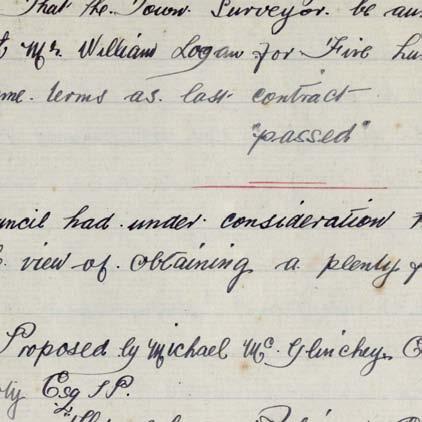 That the Town Surveyor be au
Mr William Logan for Five hu
me terms as last contract
"passed"
uncil had under consideration
view of obtaining a plenty
Proposed by Michael McGlinchey
Esq J.P.